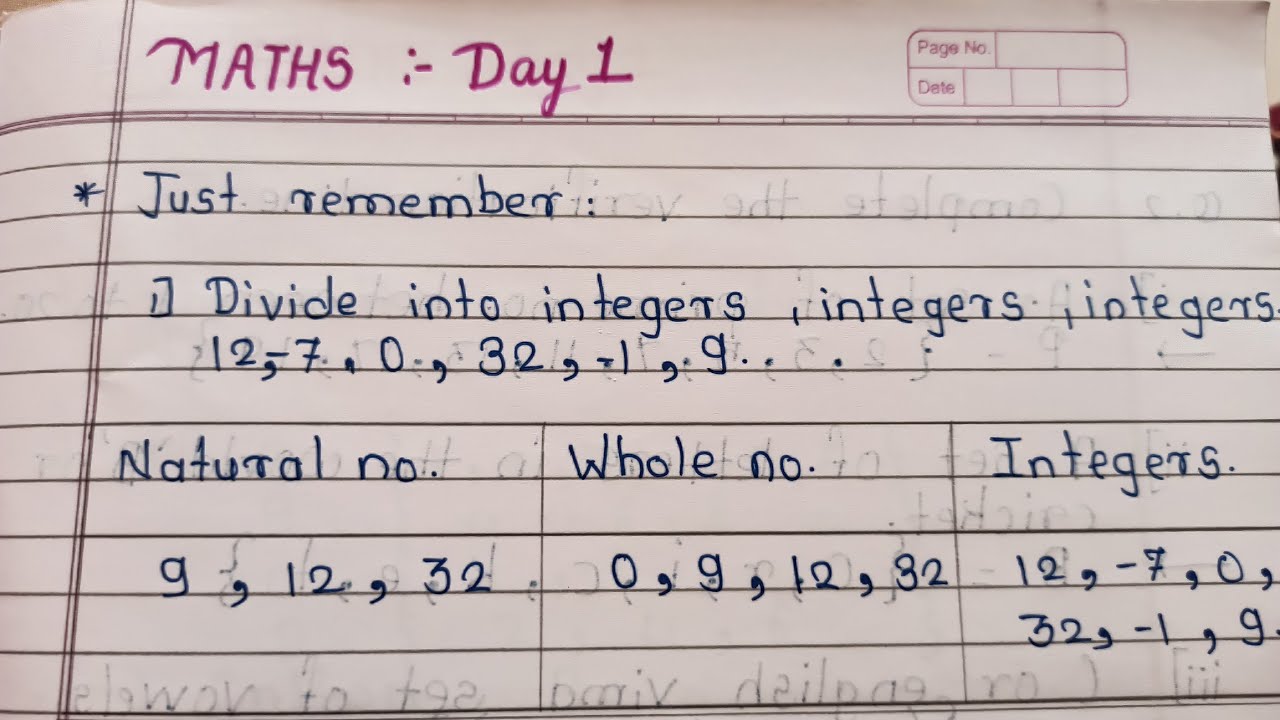 MATHS :- Day 1
Page No.
Date
* Just remember :
1] Divide into integers , integers , integers.
12, -7, 0, 32, -1, 9. .
Natural no. Whole no. Integers.
9, 12, 32. 0, 9, 12, 32 12, -7, 0,
32, -1, 9.